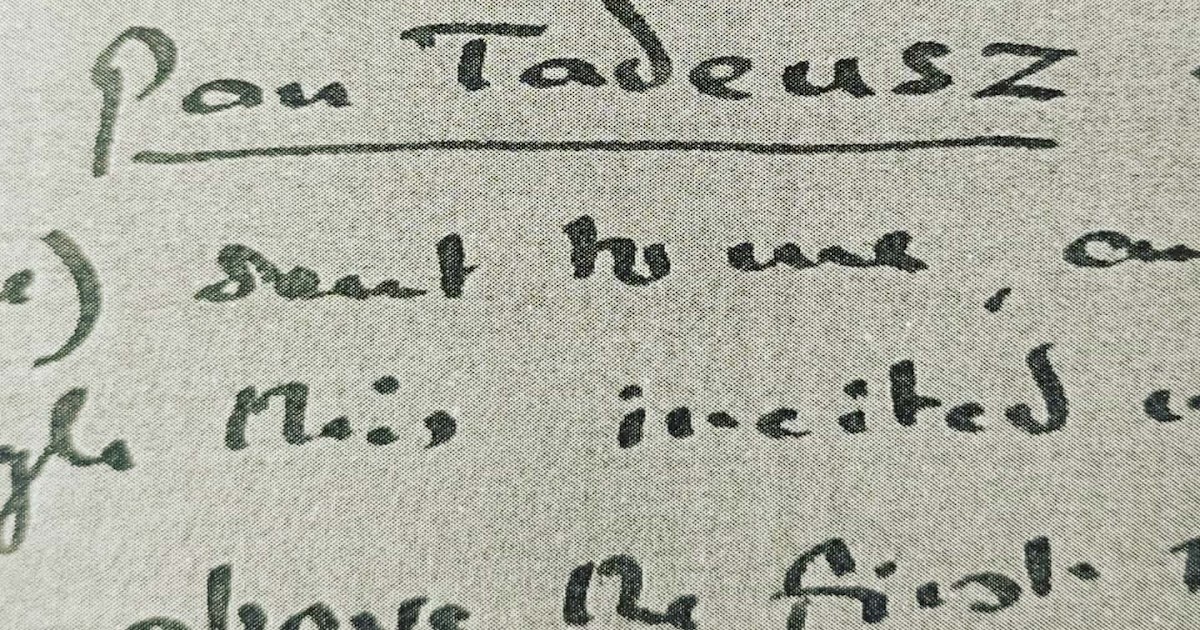 Pan Tadeusz
e) sent to me, an
gh this incited
above the first